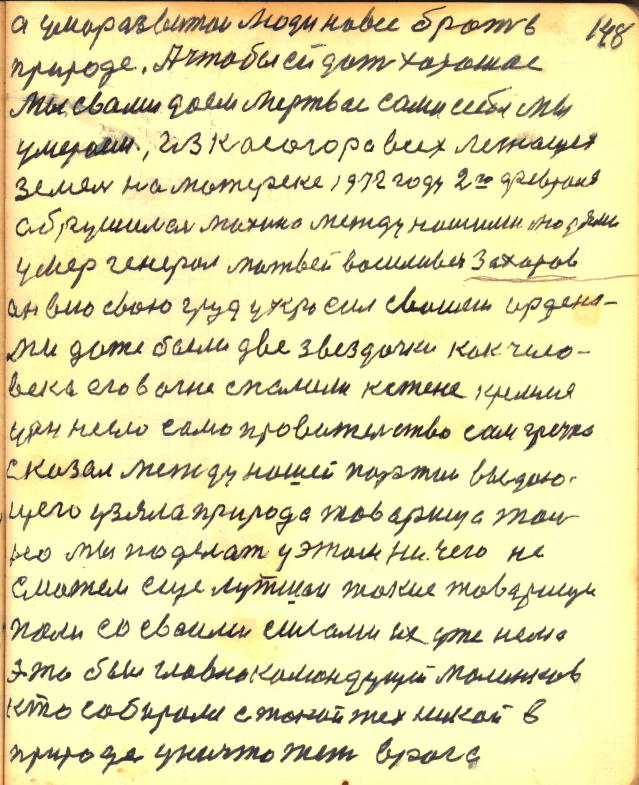 148
а уморазвитои люди новее брать в
природе. А чтобы ей дать хорошае
мы с вами даем мертвае сами себя мы
умераем, из касогора всех лежащех
земель на матереке 1972 году 2го февраля
абрушилась махина между нашими людями
умер генерал матвей василивеч Захаров
ан вою свою груд украсил своими ордена-
ми даже были две звездочки как чело-
века его вагне спалили к стене кремля
уднесло само правительство сам гречка
сказал между нашей партии выдаю-
щего узяла природа товарища та
мы поделат у этом ничего не
сможем еще лутшаи такие товарищи
пали со своими силами их уже нема
это был главнокамандущей малиновск
кто собирали с такой техникай в
природе уничтожет врага